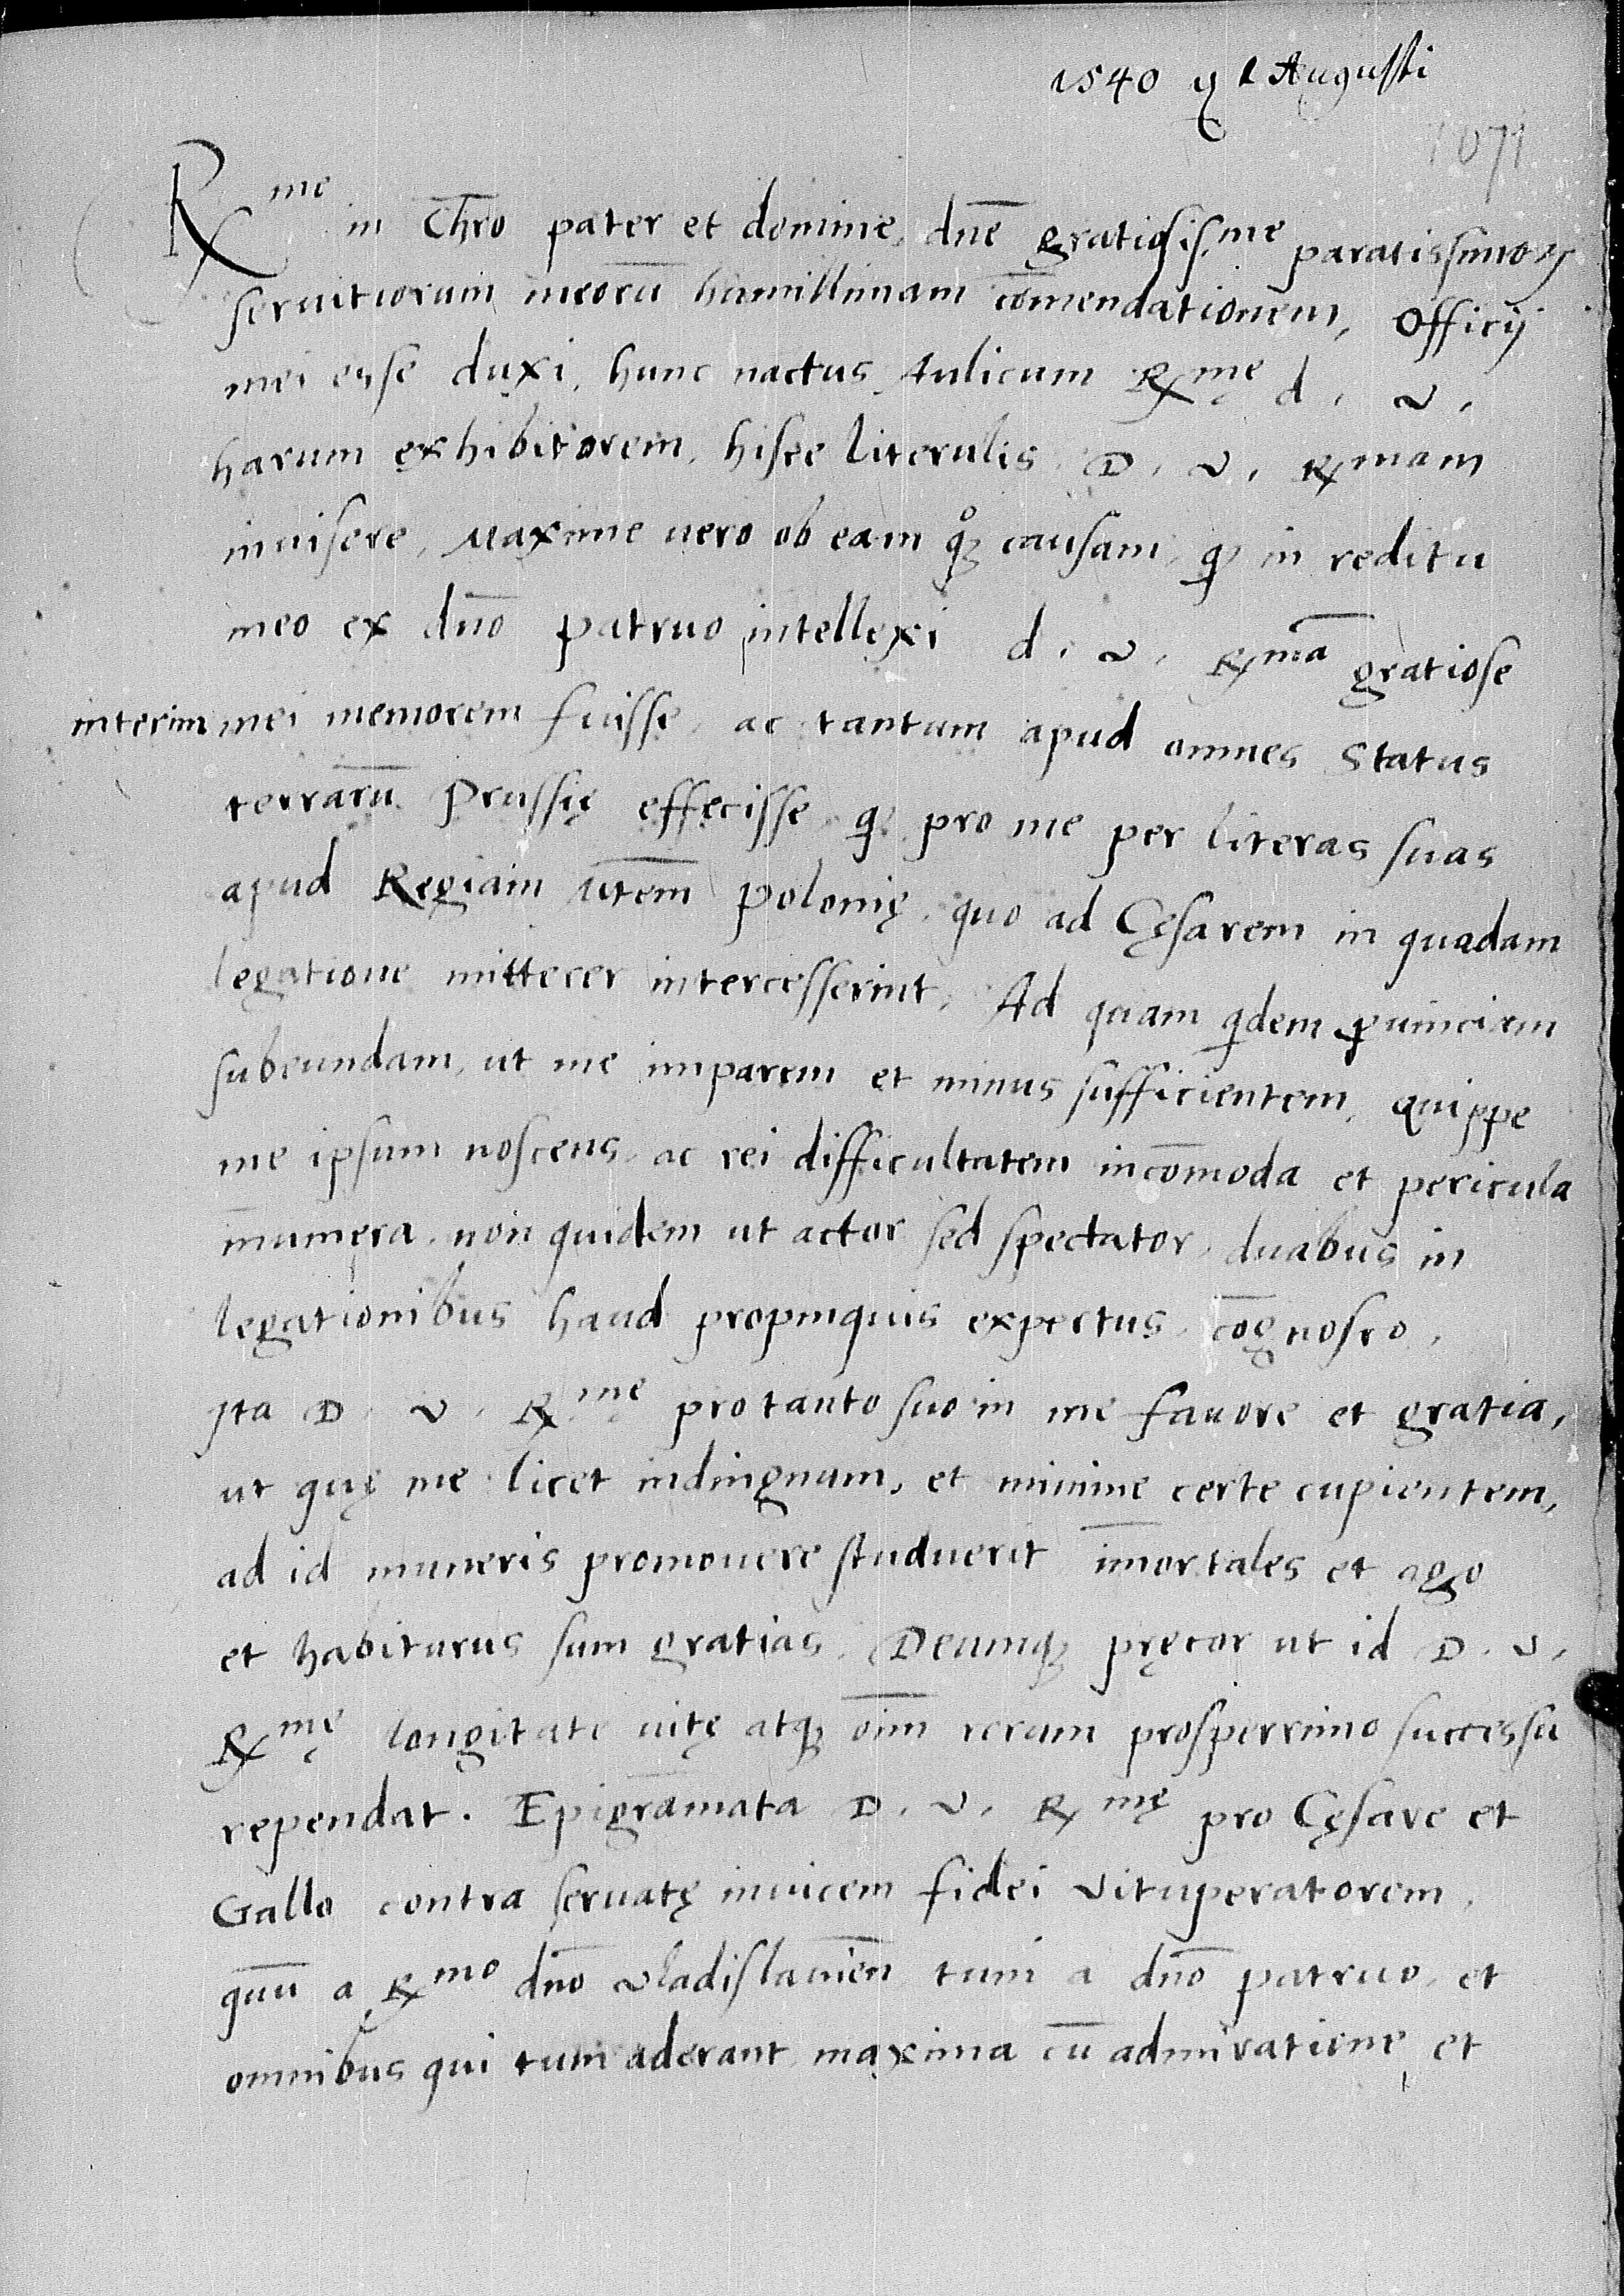 1540 Augusti
1071
Rme in Chro pater et domine, dne gratiosis.me paratissimoꝝ
seruitiorum meorū humillimam cōmendationem, Officij
mei esse duxi, hunc nactus Aulicum Rme d. v.
harum exhibitorem, hisce literulis D. v. Rmam
inuisere, Maxime uero ob eam qꝫ causam, ꝙ in reditu
meo ex dno patruo intellexi d. v. Rmā gratiose
interim mei memorem fuisse, ac tantum apud omnes Status
terrarū Prussię effecisse ꝙ pro me per literas suas
apud Regiam Mtem Polonię, quo ad Cęsarem in quadam
legatione mitterer intercesserint, Ad quam qdem ꝓuinciam
subeundam, ut me imparem et minus sufficientem, quippe
me ipsum noscens ac rei difficultatem incōmoda et pericula
īnumera, non quidem ut actor sed spectator, duabus in
legationibus haud propinquis expertus, cōgnosco,
Ita D. v. Rme pro tanto suo in me fauore et gratia,
ut quę me licet indingnum, et minime certe cupientem,
ad id muneris promouere studuerit īmortales et ago
et habiturus sum gratias, Deumqꝫ pręcor ut id D. v.
Rmę longitate uitę atqꝫ oīm rerum prosperrimo successu
rependat. Epigrāmata D. v. Rmę pro Cęsare et
Gallo contra seruatę inuicem fidei vituperatorem,
quū a Rmo dno vladislauien tum a dno patruo, et
omnibus qui tum aderant maxima cū admiratione et